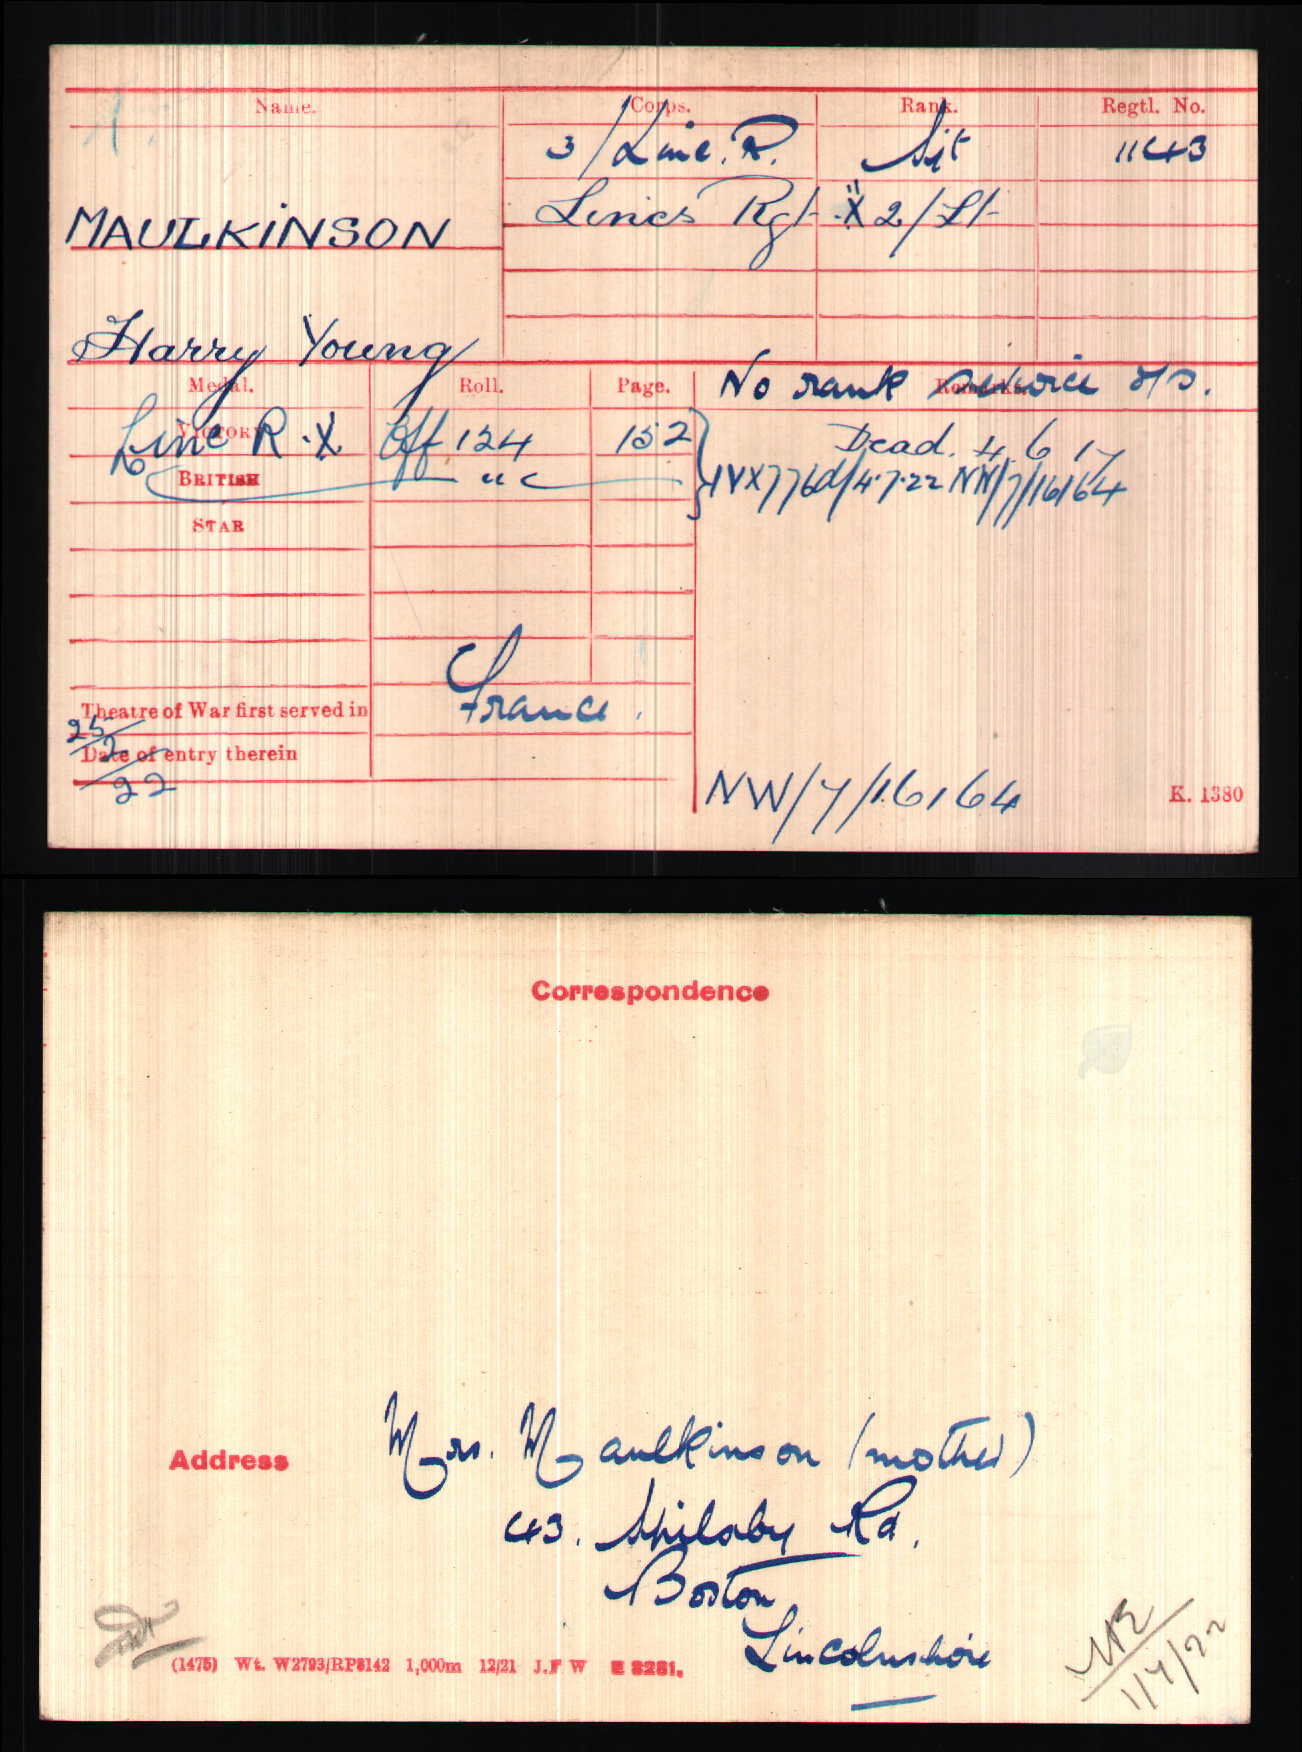 Name. Corps. Rank. Regtl. No.
3/Linc. R. Sjt 11443
MAULKINSON Lincs Rgt X 2/Lt
Harry Young
Medal. Roll. Page. Remarks. No rank service o/s.
VICTORY Linc R. X Off 124 152 Dead. 4 6 17
BRITISH IVX776d/4.7.22 NW/7/16164
STAR
Theatre of War first served in France.
Date of entry therein
25/2/22
NW/7/16164 K. 1380
Correspondence
Address Mrs. Maulkinson (mother)
43. Rd.
Boston
Lincolnshire
(1475) Wt. W2793/RP8142 1,000m 12/21 J.F W E 8281.
1/7/22